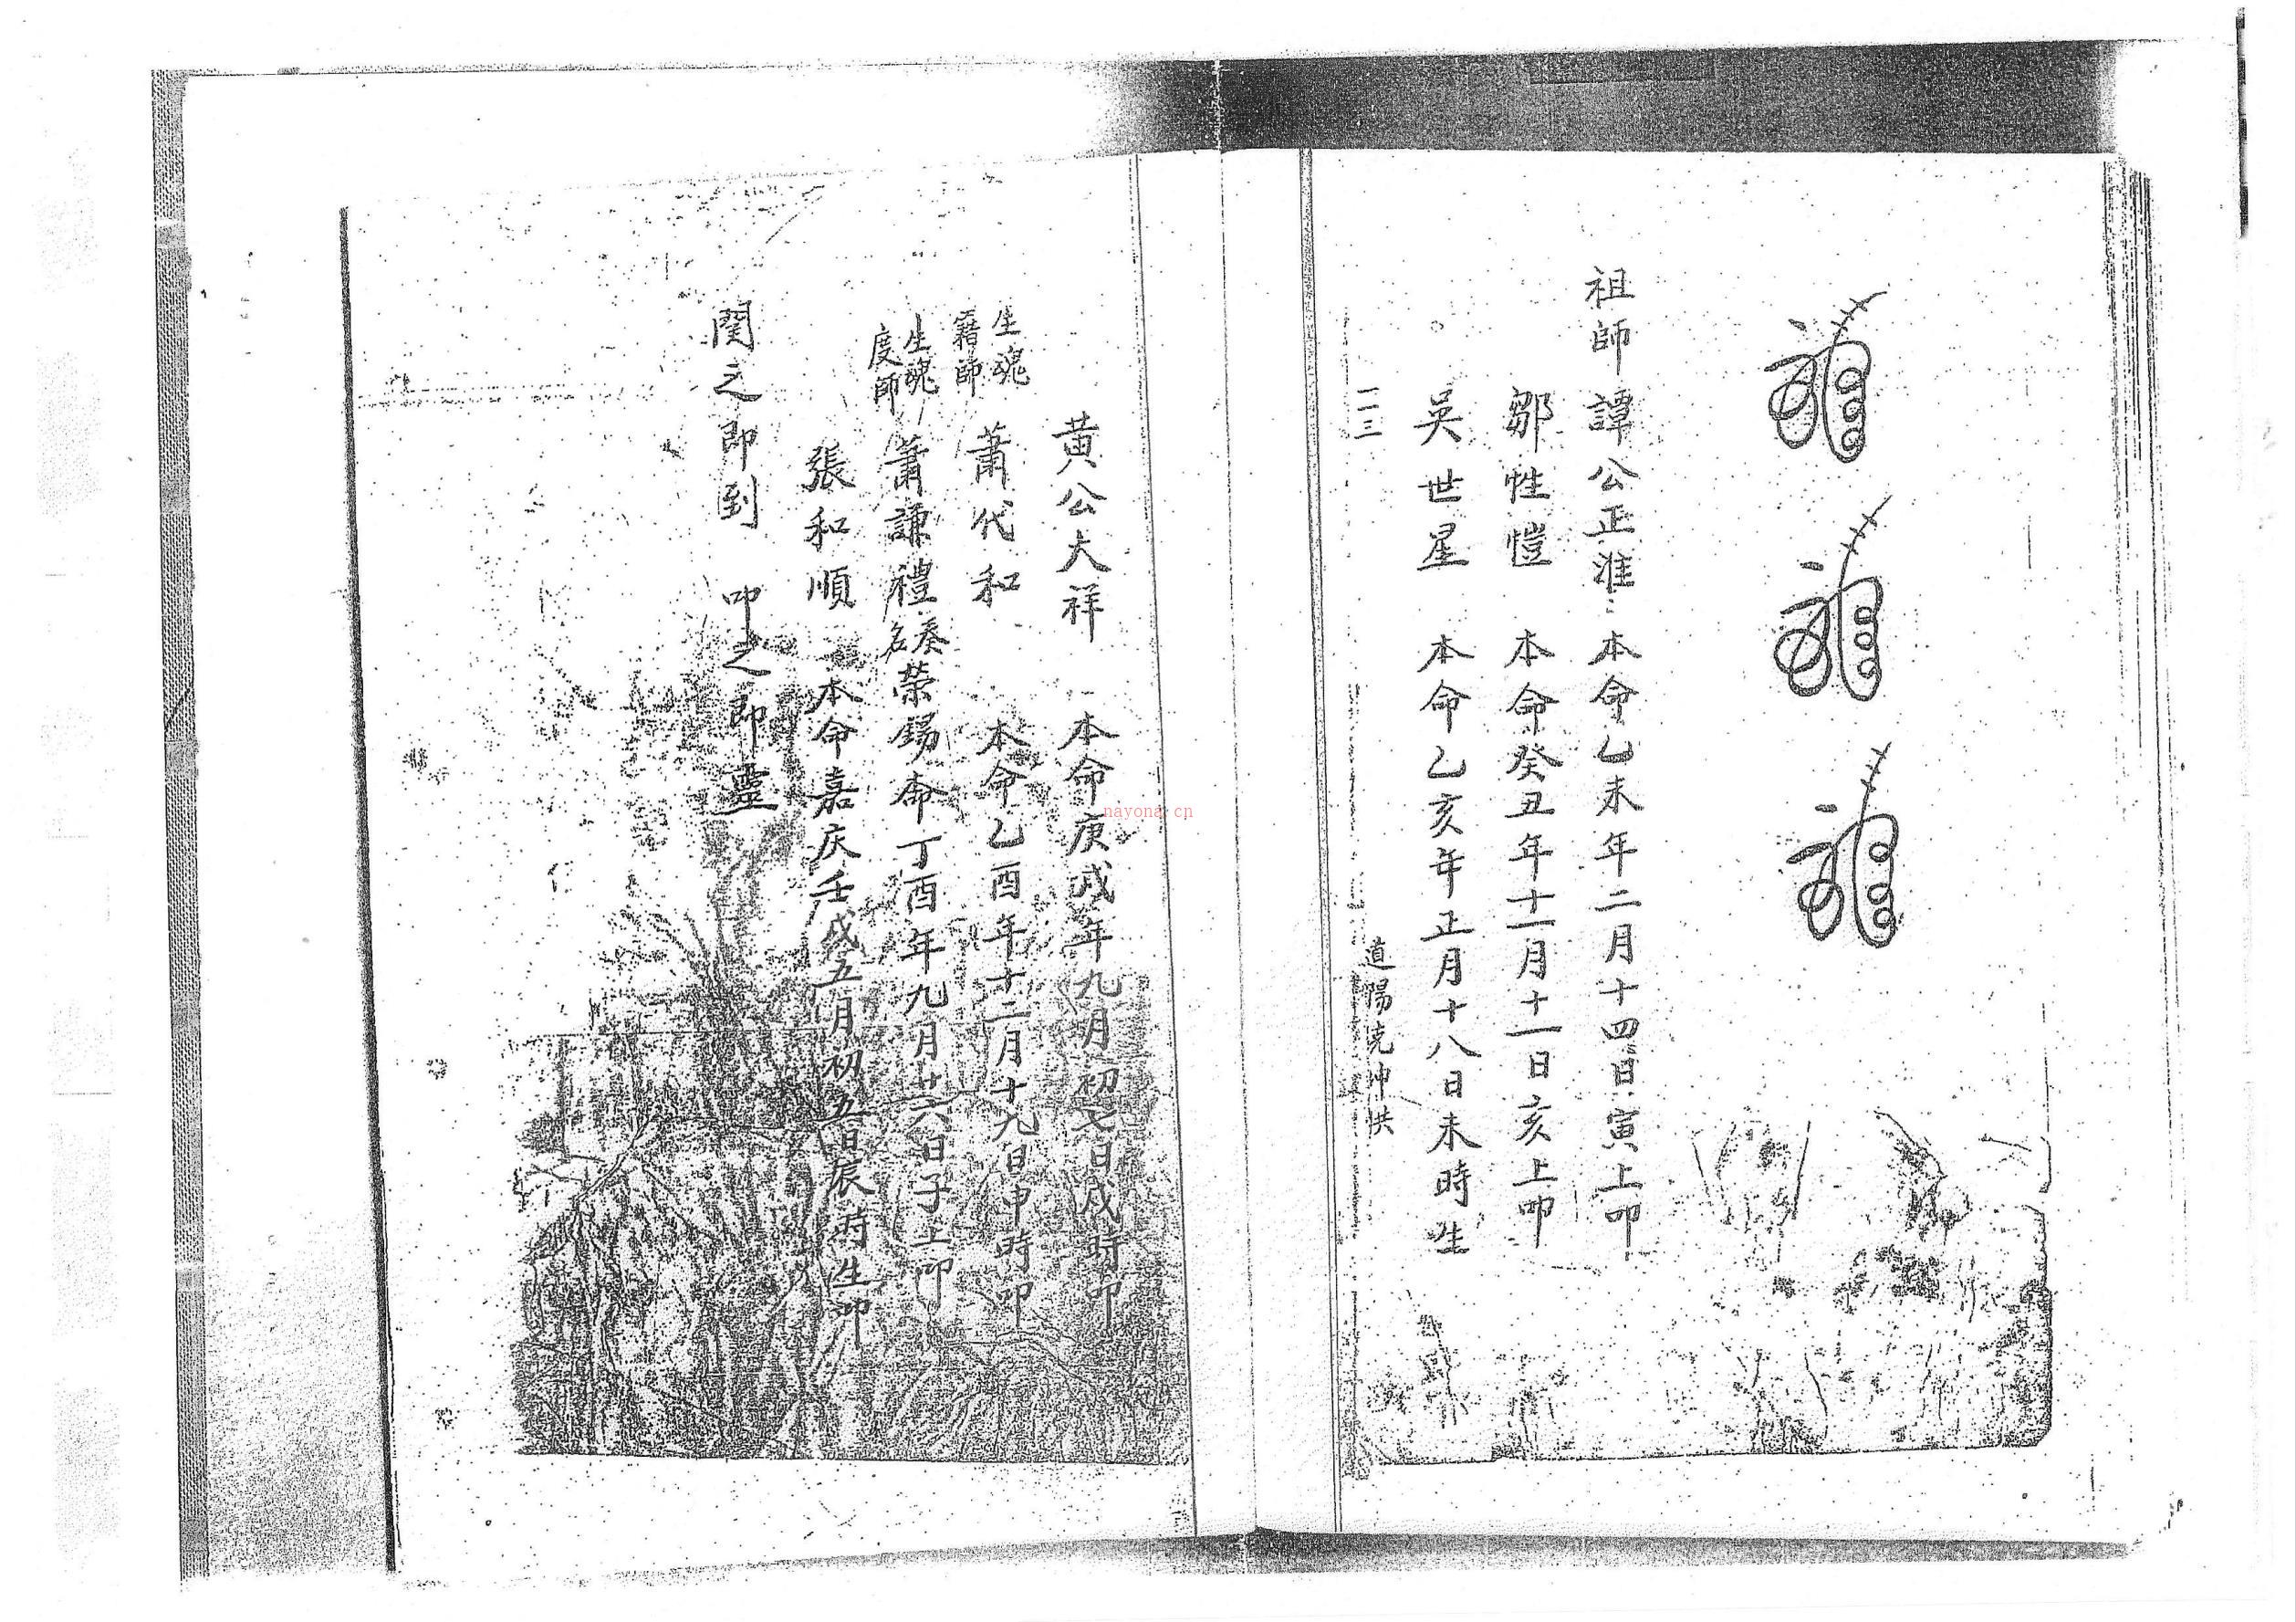 祖師譚公正淮 本命乙未年二月十四日寅上叩
鄒性愷 本命癸丑年十二月十一日亥上叩
吳世星 本命乙亥年正月十八日未時生
一一三
黃公大祥 本命庚戌年九月初七日戌時叩
生魂籍師 蕭代和 本命乙酉年十二月十九日申時叩
生魂度師 蕭謙禮 奏名榮錫 本命丁酉年九月廿六日子上叩
張和順 本命嘉庆壬戌五月初五日辰時生叩
闻之即到 叩之即靈
nayona.cn